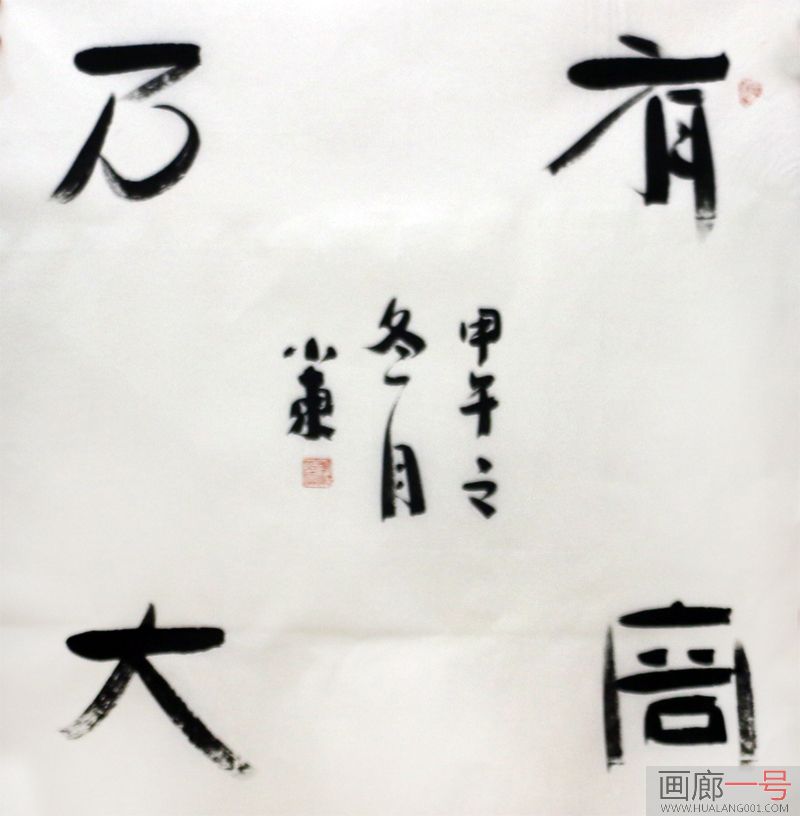 有容
乃大
甲午之
冬月
小
画廊一号
WWW.HUALANG001.COM